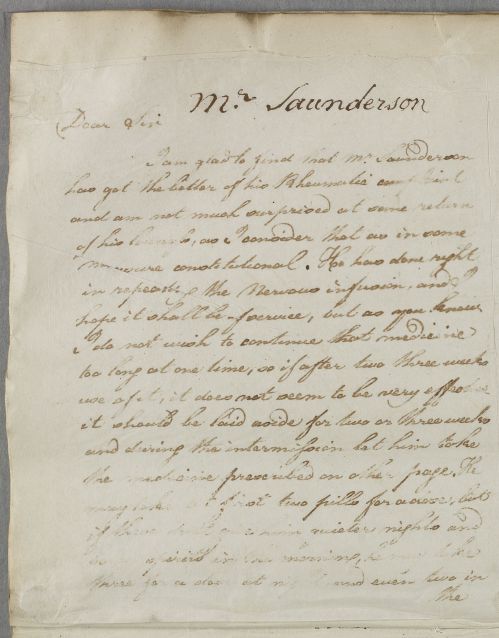 Mr. Saunderson
Dear Sir
I am glad to find that Mr. Saunderson
has got the better of his Rheumatic
and am not much surprised at some return
of his, as I consider that as in some
measure constitutional. He has done right
in repeating the Nervous infusion, and I
hope it shall be of service, but as you know
I do not wish to continue that medicine
too long at one time, so if after two three weeks
use of it, it does not seem to be very effective
it should be laid aside for two or three weeks
and during the intermission let him take
the medicine prescribed on other page. He
may take at first two pills for a dose, but
if these give him quieter nights and
in the morning, he may take
three for a dose at night and even two in
the